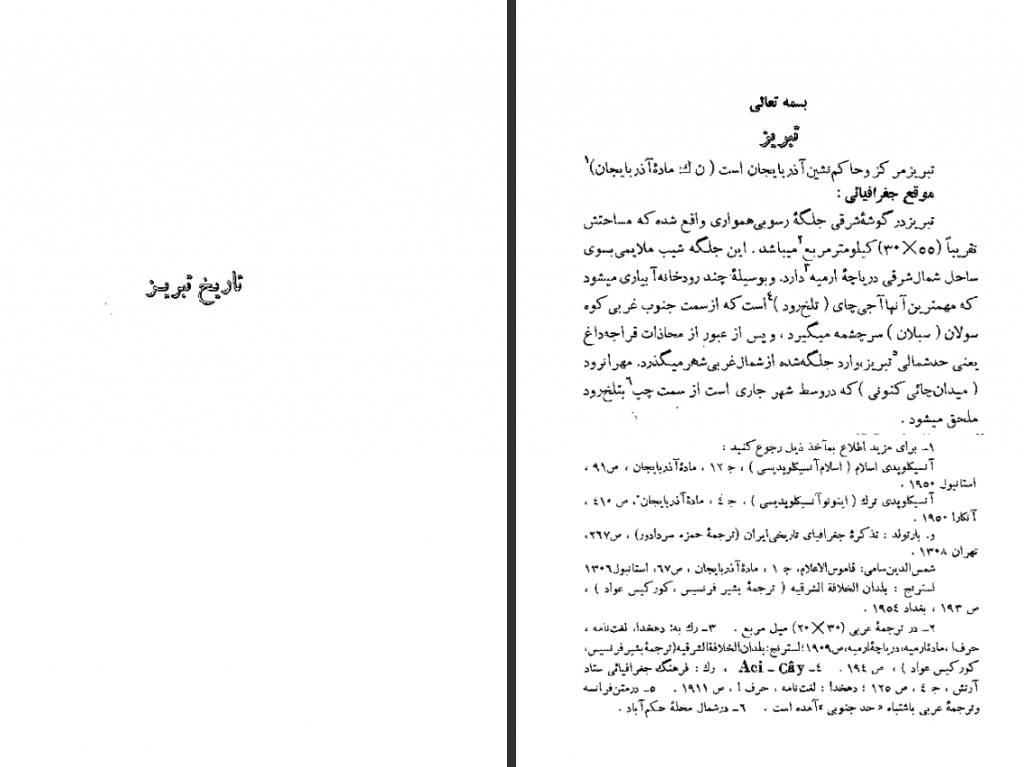 بسمه تعالی
تبریز
تبریز مرکز و حاکم نشین آذربایجان است ( ن ك: مادهٔ آذربایجان)۱
موقع جغرافیائی :
تبریز در گوشهٔ شرقی جلگهٔ رسوبی همواری واقع شده که مساحتش
تقریباً (۵۵×۳۰) کیلومتر مربع۲ میباشد . این جلگه شیب ملایمی بسوی
ساحل شمال شرقی دریاچهٔ ارمیه۳ دارد. و بوسیلهٔ چند رودخانه آبیاری میشود
که مهمترین آنها آجی چای ( تلخ رود )۴ است که از سمت جنوب غربی کوه
سولان ( سبلان ) سرچشمه میگیرد ، و پس از عبور از محاذات قراجه داغ
یعنی حد شمالی۵ تبریز ، وارد جلگه شده از شمال غربی شهر میگذرد. مهرانرود
( میدان چائی کنونی ) که در وسط شهر جاری است از سمت چپ۶ بتلخ رود
ملحق میشود .
۱ـ برای مزید اطلاع بمآخذ ذیل رجوع کنید :
آنسیکلوپدی اسلام ( اسلام آنسیکلوپدیسی ) ، ج ۱۲ ، مادهٔ آذربایجان ، ص ۹۱ ،
استانبول ۱۹۵۰ .
آنسیکلوپدی ترك ( اینونو آنسیکلوپدیسی ) ، ج ٤ ، مادهٔ آذربایجان ، ص ٤۱۰ ،
آنکارا ۱۹۵۰ .
و. بارتولد : تذکرهٔ جغرافیای تاریخی ایران (ترجمهٔ حمزه سردادور) ، ص ۲٦۷،
تهران ۱۳۰۸ .
شمس الدین سامی: قاموس الاعلام، ج ۱ ، مادهٔ آذربایجان ، ص ٦۷، استانبول ۱۳۰٦
استرنج : بلدان الخلافة الشرقیه ( ترجمهٔ بشیر فرنسیس ، کورکیس عواد ) ،
ص ۱۹۳ ، بغداد ۱۹۵٤ .
۲ـ در ترجمهٔ عربی (۳۰×۲۰) میل مربع . ۳ـ رك به: دهخدا، لغت نامه ،
حرف ا ، مادهٔ ارمیه، دریاچهٔ ارمیه، ص ۱۹۰۹؛ لسترنج: بلدان الخلافة الشرقیه (ترجمهٔ بشیر فرنسیس،
کورکیس عواد ) ، ص ۱۹٤ . ٤ـ Aci - Çây ، رك : فرهنگ جغرافیائی ستاد
آرتش ، ج ٤ ، ص ۱۲۵ ؛ دهخدا : لغت نامه ، حرف ا ، ص ۱۹۱۱ . ۵ـ در متن فرانسه
و ترجمهٔ عربی باشتباه « حد جنوبی » آمده است . ٦ـ در شمال محلهٔ حکم آباد .
تاریخ تبریز